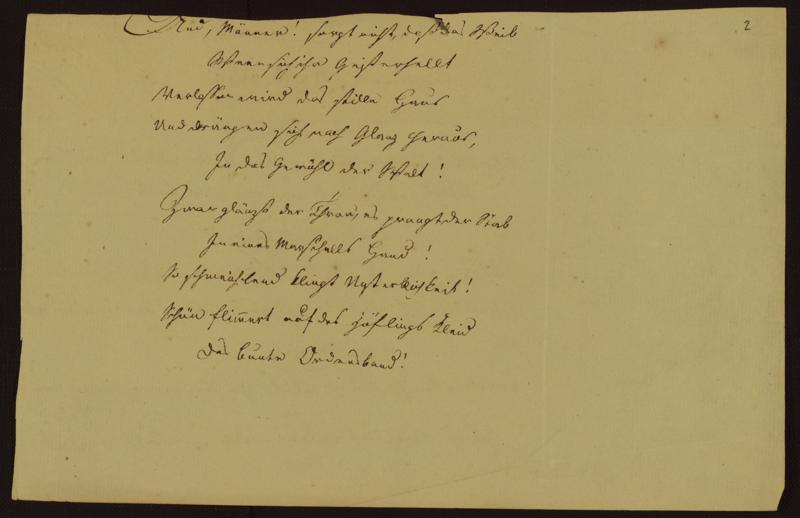 2
Und, Männer! sorgt nicht, daß das Weib
Wenn sich ihr Geist erhellt
Verlassen wird das stille Haus
Und drängen sich nach Glanz heraus,
In das Gewühl der Welt!
Zwar glänzt der Thron, es prangt der Stab
In eines Marschalls Hand!
So schmeichlend klingt Unsterblichkeit!
Schön flimmert auf des Höflings Kleid
Das bunte Ordensband!